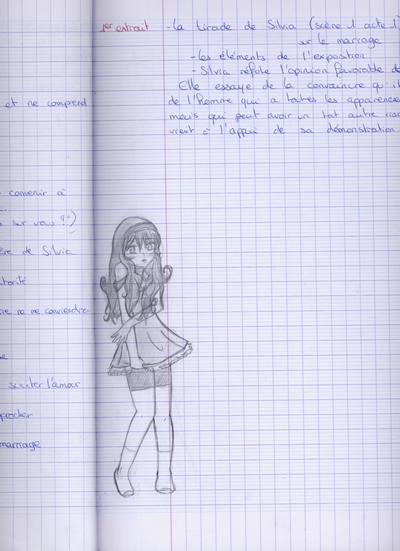 et ne comprend
convenir à
sur vous ?")
ère de Silvia
torité
ne ne conviendra
susciter l'amour
mariage
1er extrait - La tirade de Silvia (scène 1 acte 1)
sur le mariage
- Les éléments de l'exposition.
- Silvia réfute l'opinion favorable de
Elle essaye de la convaincre qu'il
de l'homme qui a toutes les apparences
mais qui peut avoir un tout autre
vient à l'appui de sa démonstration.